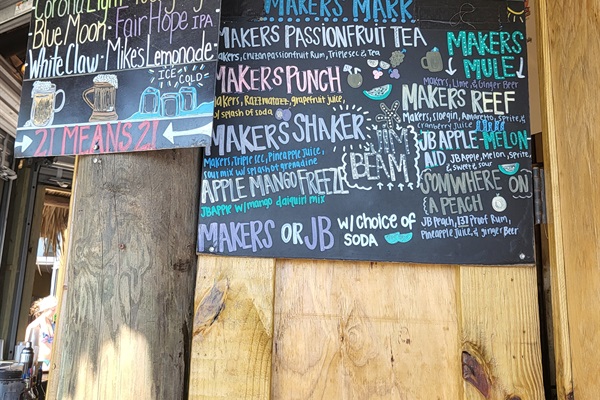 Blue Moon · FairHope IPA
White Claw · Mikes Lemonade
ICE COLD
21 MEANS 21
MAKERS MARK
MAKERS PASSIONFRUIT TEA
Makers, Cruzan passionfruit Rum, Triple sec, & Tea
MAKERS PUNCH
Makers, Razzmatazz, grapefruit juice,
w/ splash of soda
MAKERS SHAKER
Makers, Triple sec, Pineapple Juice,
sour mix w/ splash of grenadine
APPLE MANGO FREEZE
JB APPLE w/ mango daiquiri mix
MAKERS OR JB w/ CHOICE OF
SODA
JIM
BEAM
MAKERS
MULE
Makers, Lime, & Ginger Beer
MAKERS REEF
Makers, Amaretto, Sprite, &
cranberry Juice
JB APPLE-MELON-
AID JB Apple, Melon, Sprite,
& sweet & sour
SOMWHERE ON
A PEACH
JB Peach, 151 Proof Rum,
Pineapple Juice, & ginger Beer